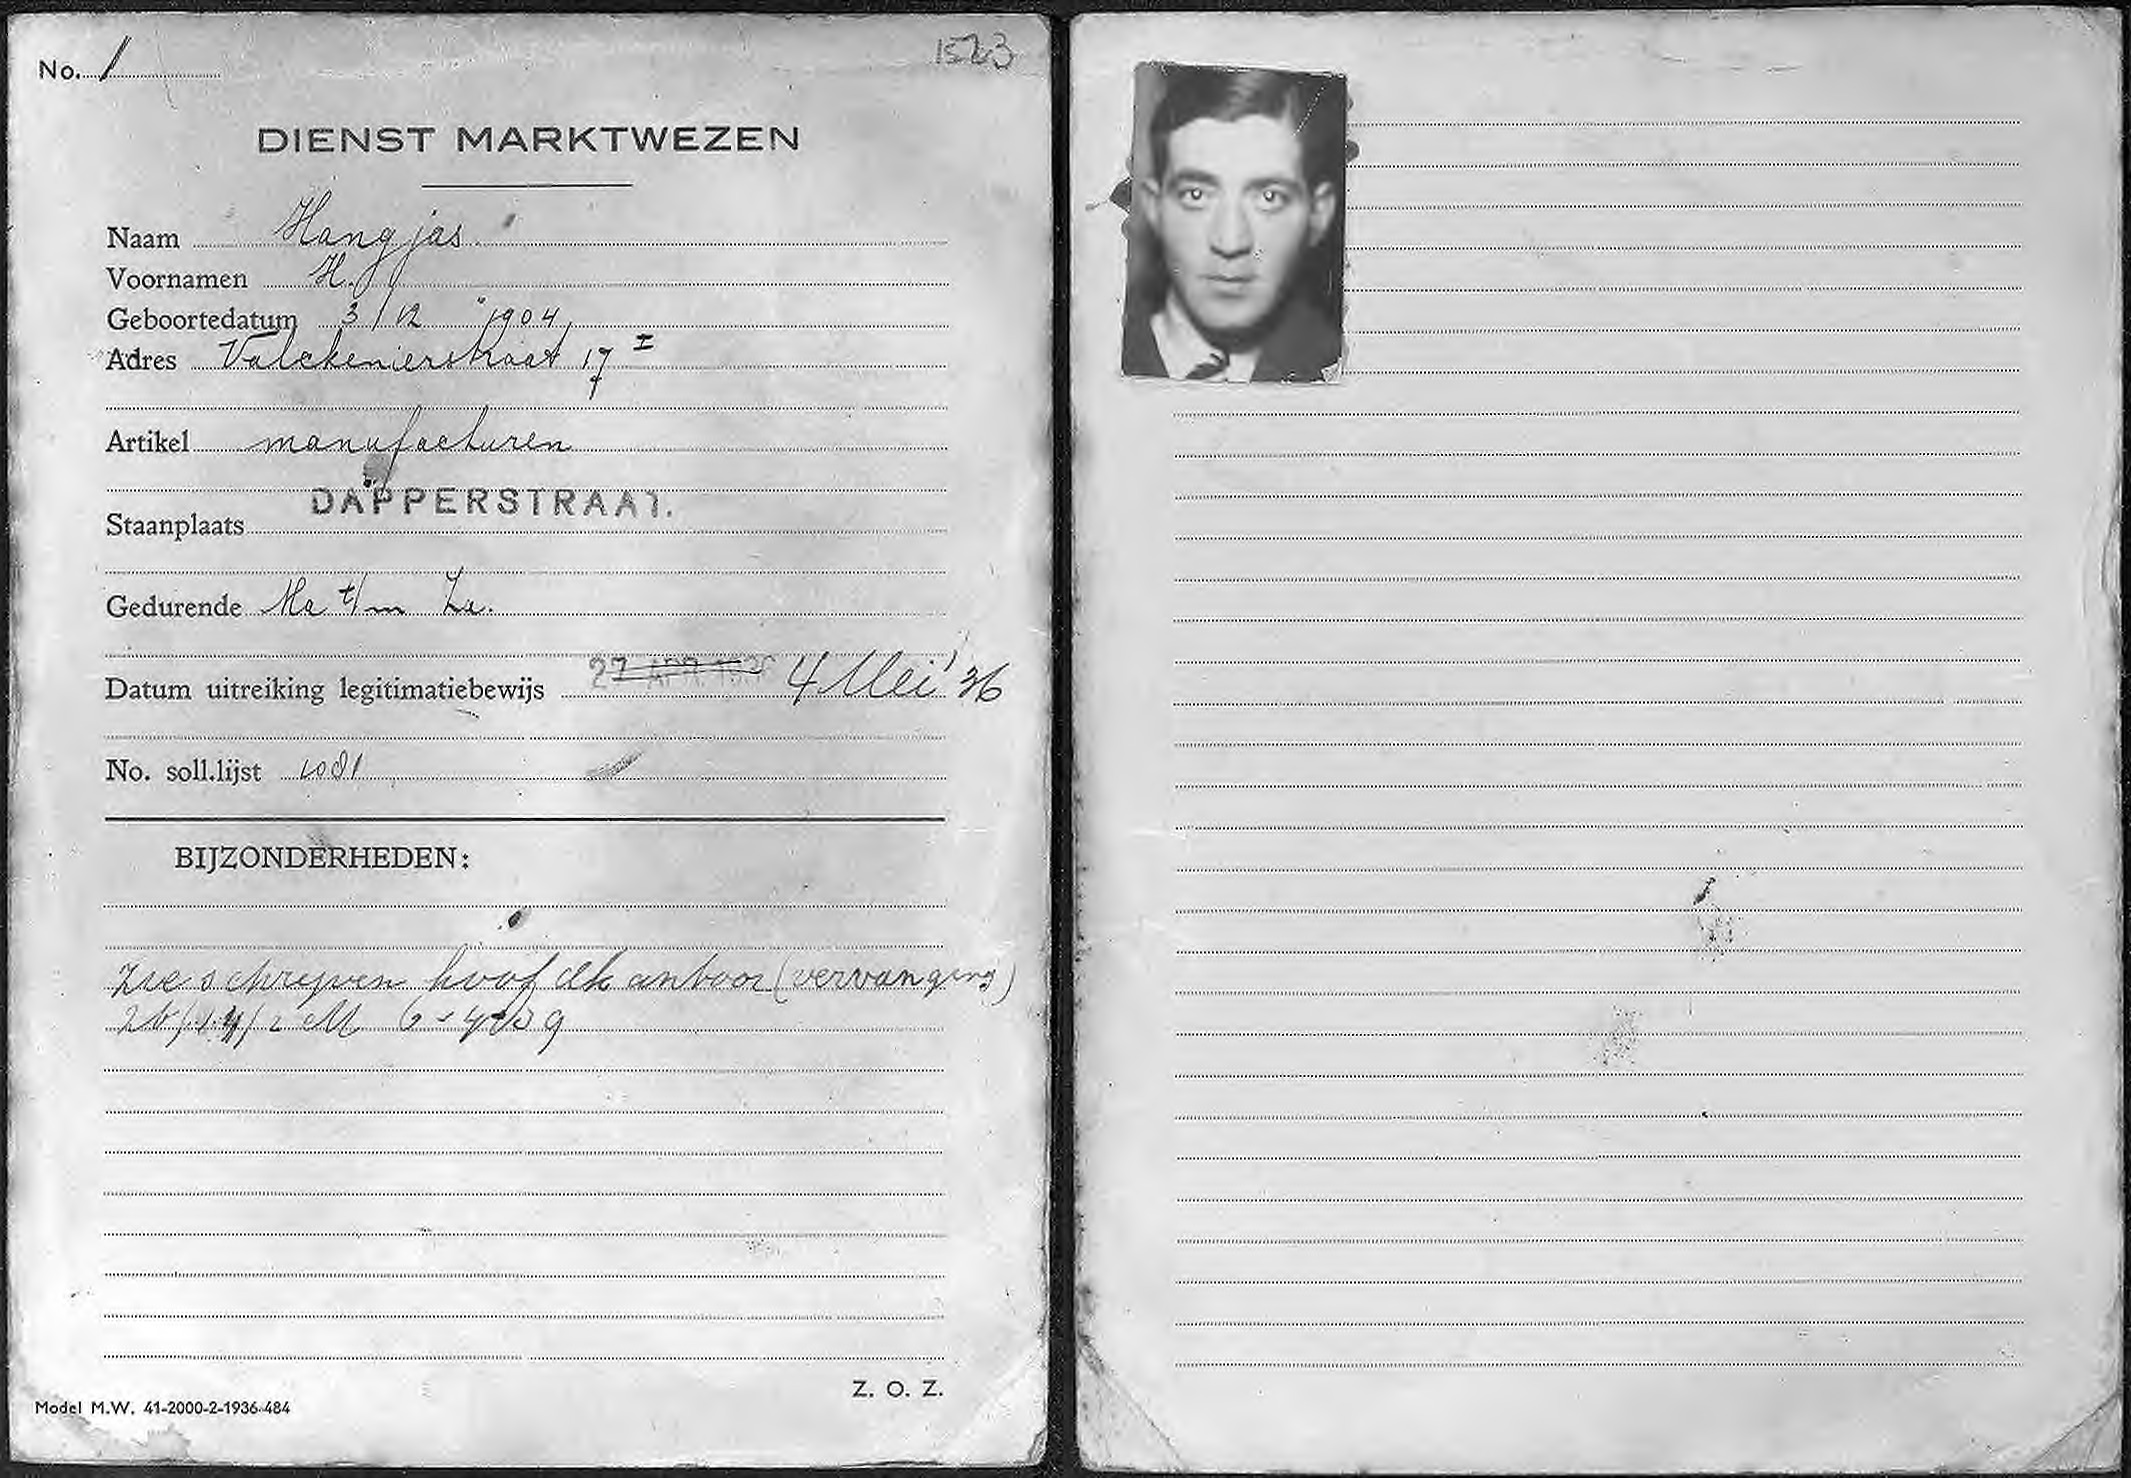 No. 1
1523
DIENST MARKTWEZEN
Naam Hangjas.
Voornamen H.
Geboortedatum 3/12 1904
Adres Valckenierstraat 17 I
Artikel manufacturen
DAPPERSTRAAT.
Staanplaats
Gedurende Ma t/m Za.
Datum uitreiking legitimatiebewijs 27 APR 1936 4 Mei '36
No. soll.lijst 1081
BIJZONDERHEDEN:
Zie schrijven hoofdkantoor (vervanging)
M 6-4-39
Z. O. Z.
Model M.W. 41-2000-2-1936-484